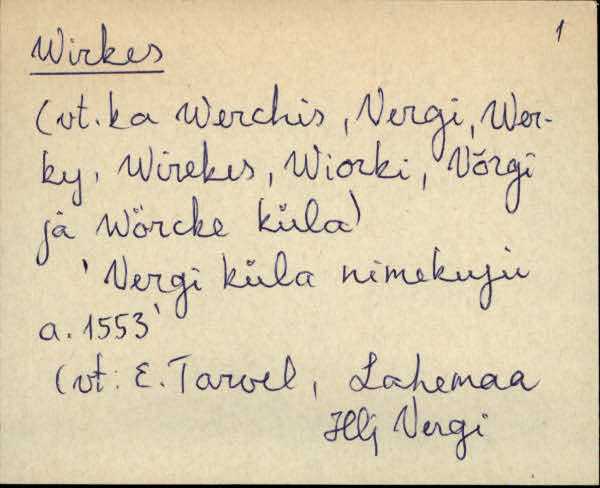 1
Wirkes
(vt. ka Werchis, Vergi, Wer-
ky, Wirekes, Wiorki, Võrgi
ja Wörcke küla)
'Vergi küla nimekuju
a. 1553'
(vt: E. Tarvel, Lahemaa
Hlj Vergi